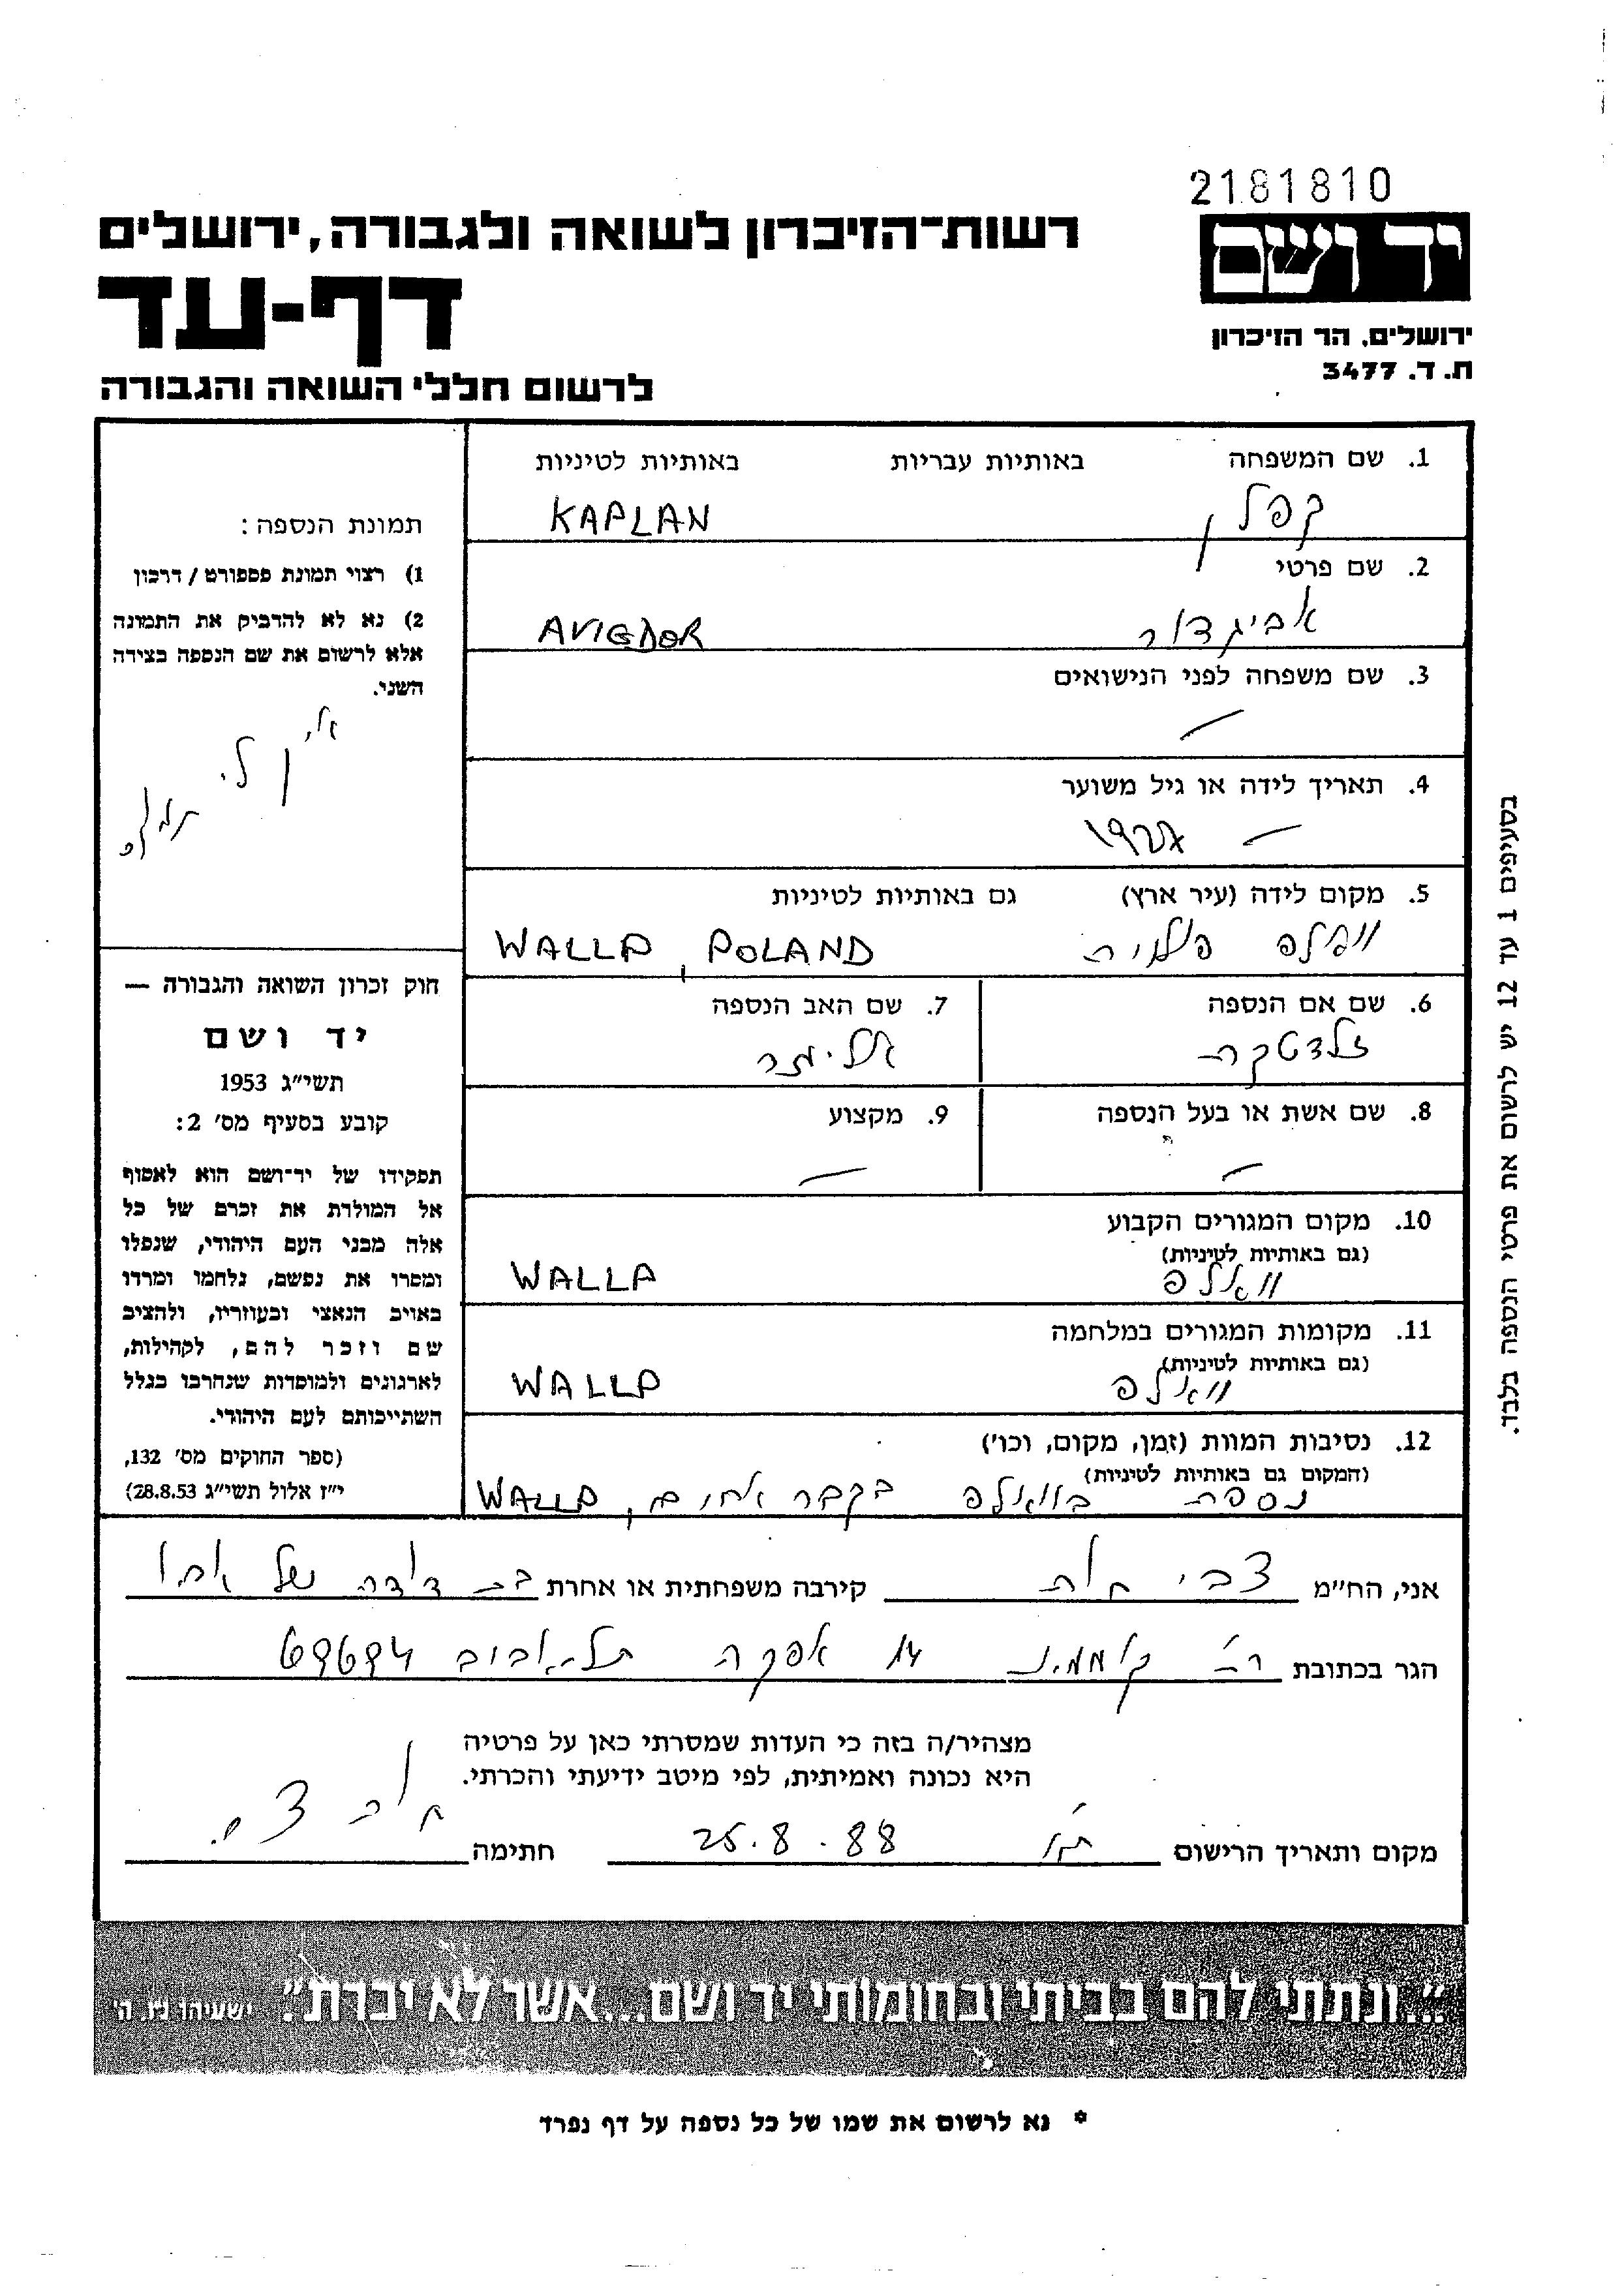 2181810
יד ושם
רשות־הזיכרון לשואה ולגבורה, ירושלים
דף-עד
ירושלים, הר הזיכרון
ת. ד. 3477
לרשום חללי השואה והגבורה
1. שם המשפחה באותיות עבריות באותיות לטיניות
קפלן KAPLAN
2. שם פרטי
אביגדור AVIGDOR
3. שם משפחה לפני הנישואים
—
4. תאריך לידה או גיל משוער
—
5. מקום לידה (עיר ארץ) גם באותיות לטיניות
פולניה WALLA, POLAND
6. שם אם הנספה 7. שם האב הנספה
זלדטקה
8. שם אשת או בעל הנספה 9. מקצוע
— —
10. מקום המגורים הקבוע
(גם באותיות לטיניות)
וואלפ WALLA
11. מקומות המגורים במלחמה
(גם באותיות לטיניות)
וואלפ WALLA
12. נסיבות המוות (זמן, מקום, וכו')
(המקום גם באותיות לטיניות)
נספה בוואלפ בקבר אחים, WALLA
תמונת הנספה:
1) רצוי תמונת פספורט / דרכון
2) נא לא להדביק את התמונה
אלא לרשום את שם הנספה בצידה
השני.
אין לי
חוק זכרון השואה והגבורה —
יד ושם
תשי"ג 1953
קובע בסעיף מס' 2:
תפקידו של יד־ושם הוא לאסוף
אל המולדת את זכרם של כל
אלה מבני העם היהודי, שנפלו
ומסרו את נפשם, נלחמו ומרדו
באויב הנאצי ובעוזריו, ולהציב
שם וזכר להם, לקהילות,
לארגונים ולמוסדות שנחרבו בגלל
השתייכותם לעם היהודי.
(ספר החוקים מס' 132,
י"ז אלול תשי"ג 28.8.53)
בסעיפים 1 עד 12 יש לרשום את פרטי הנספה בלבד.
אני, הח"מ צבי קירבה משפחתית או אחרת בן דודה של אחי
הגר בכתובת רח' 14 אפקה תל-אביב 69694
מצהיר/ה בזה כי העדות שמסרתי כאן על פרטיה
היא נכונה ואמיתית, לפי מיטב ידיעתי והכרתי.
מקום ותאריך הרישום ת"א 25.8.88 חתימה
"...ונתתי להם בביתי ובחומותי יד ושם...אשר לא יכרת." ישעיהו נו, ה'
* נא לרשום את שמו של כל נספה על דף נפרד